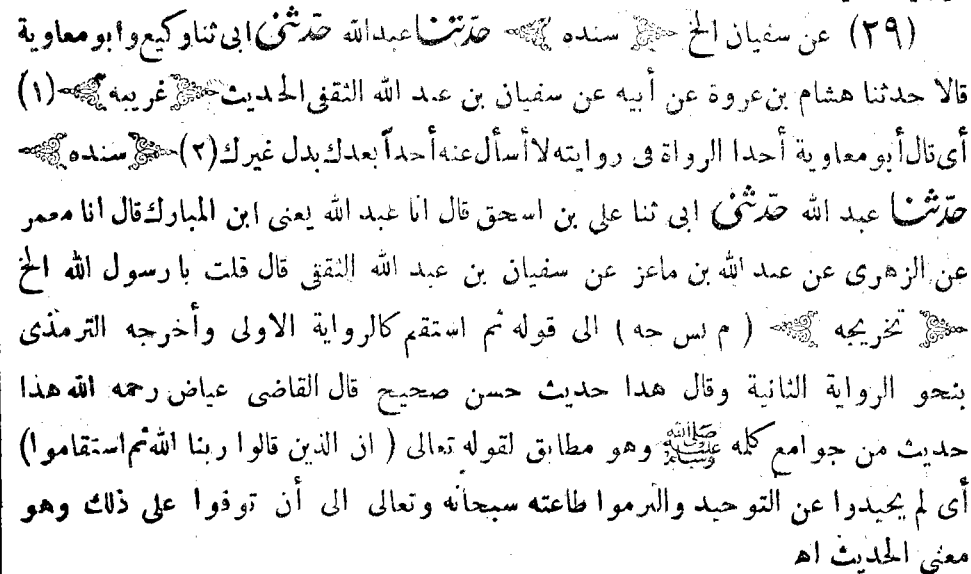 (٢٩) عن سفيان الخ ﴿ سنده ﴾ حدّثنا عبدالله حدّثنى ابى ثنا وكيع وابو معاوية
قالا حدثنا هشام بن عروة عن أبيه عن سفيان بن عبد الله الثقفى الحديث ﴿ غريبه ﴾ (١)
أى قال أبو معاوية أحدا الرواة فى روايته لا أسأل عنه أحداً بعدك بدل غيرك (٢) ﴿ سنده ﴾
حدّثنا عبد الله حدّثنى ابى ثنا على بن اسحق قال انا عبد الله يعنى ابن المبارك قال انا معمر
عن الزهرى عن عبد الله بن ماعز عن سفيان بن عبد الله الثقفى قال قلت يا رسول الله الخ
﴿ تخريجه ﴾ ( م نس جه ) الى قوله ثم استقم كالرواية الاولى وأخرجه الترمذى
بنحو الرواية الثانية وقال هدا حديث حسن صحيح قال القاضى عياض رحمه الله هذا
حديث من جوامع كلمه ﷺ وهو مطابق لقوله تعالى ( ان الذين قالوا ربنا الله ثم استقاموا )
أى لم يحيدوا عن التوحيد والتزموا طاعته سبحانه وتعالى الى أن توفوا على ذلك وهو
معنى الحديث اهـ